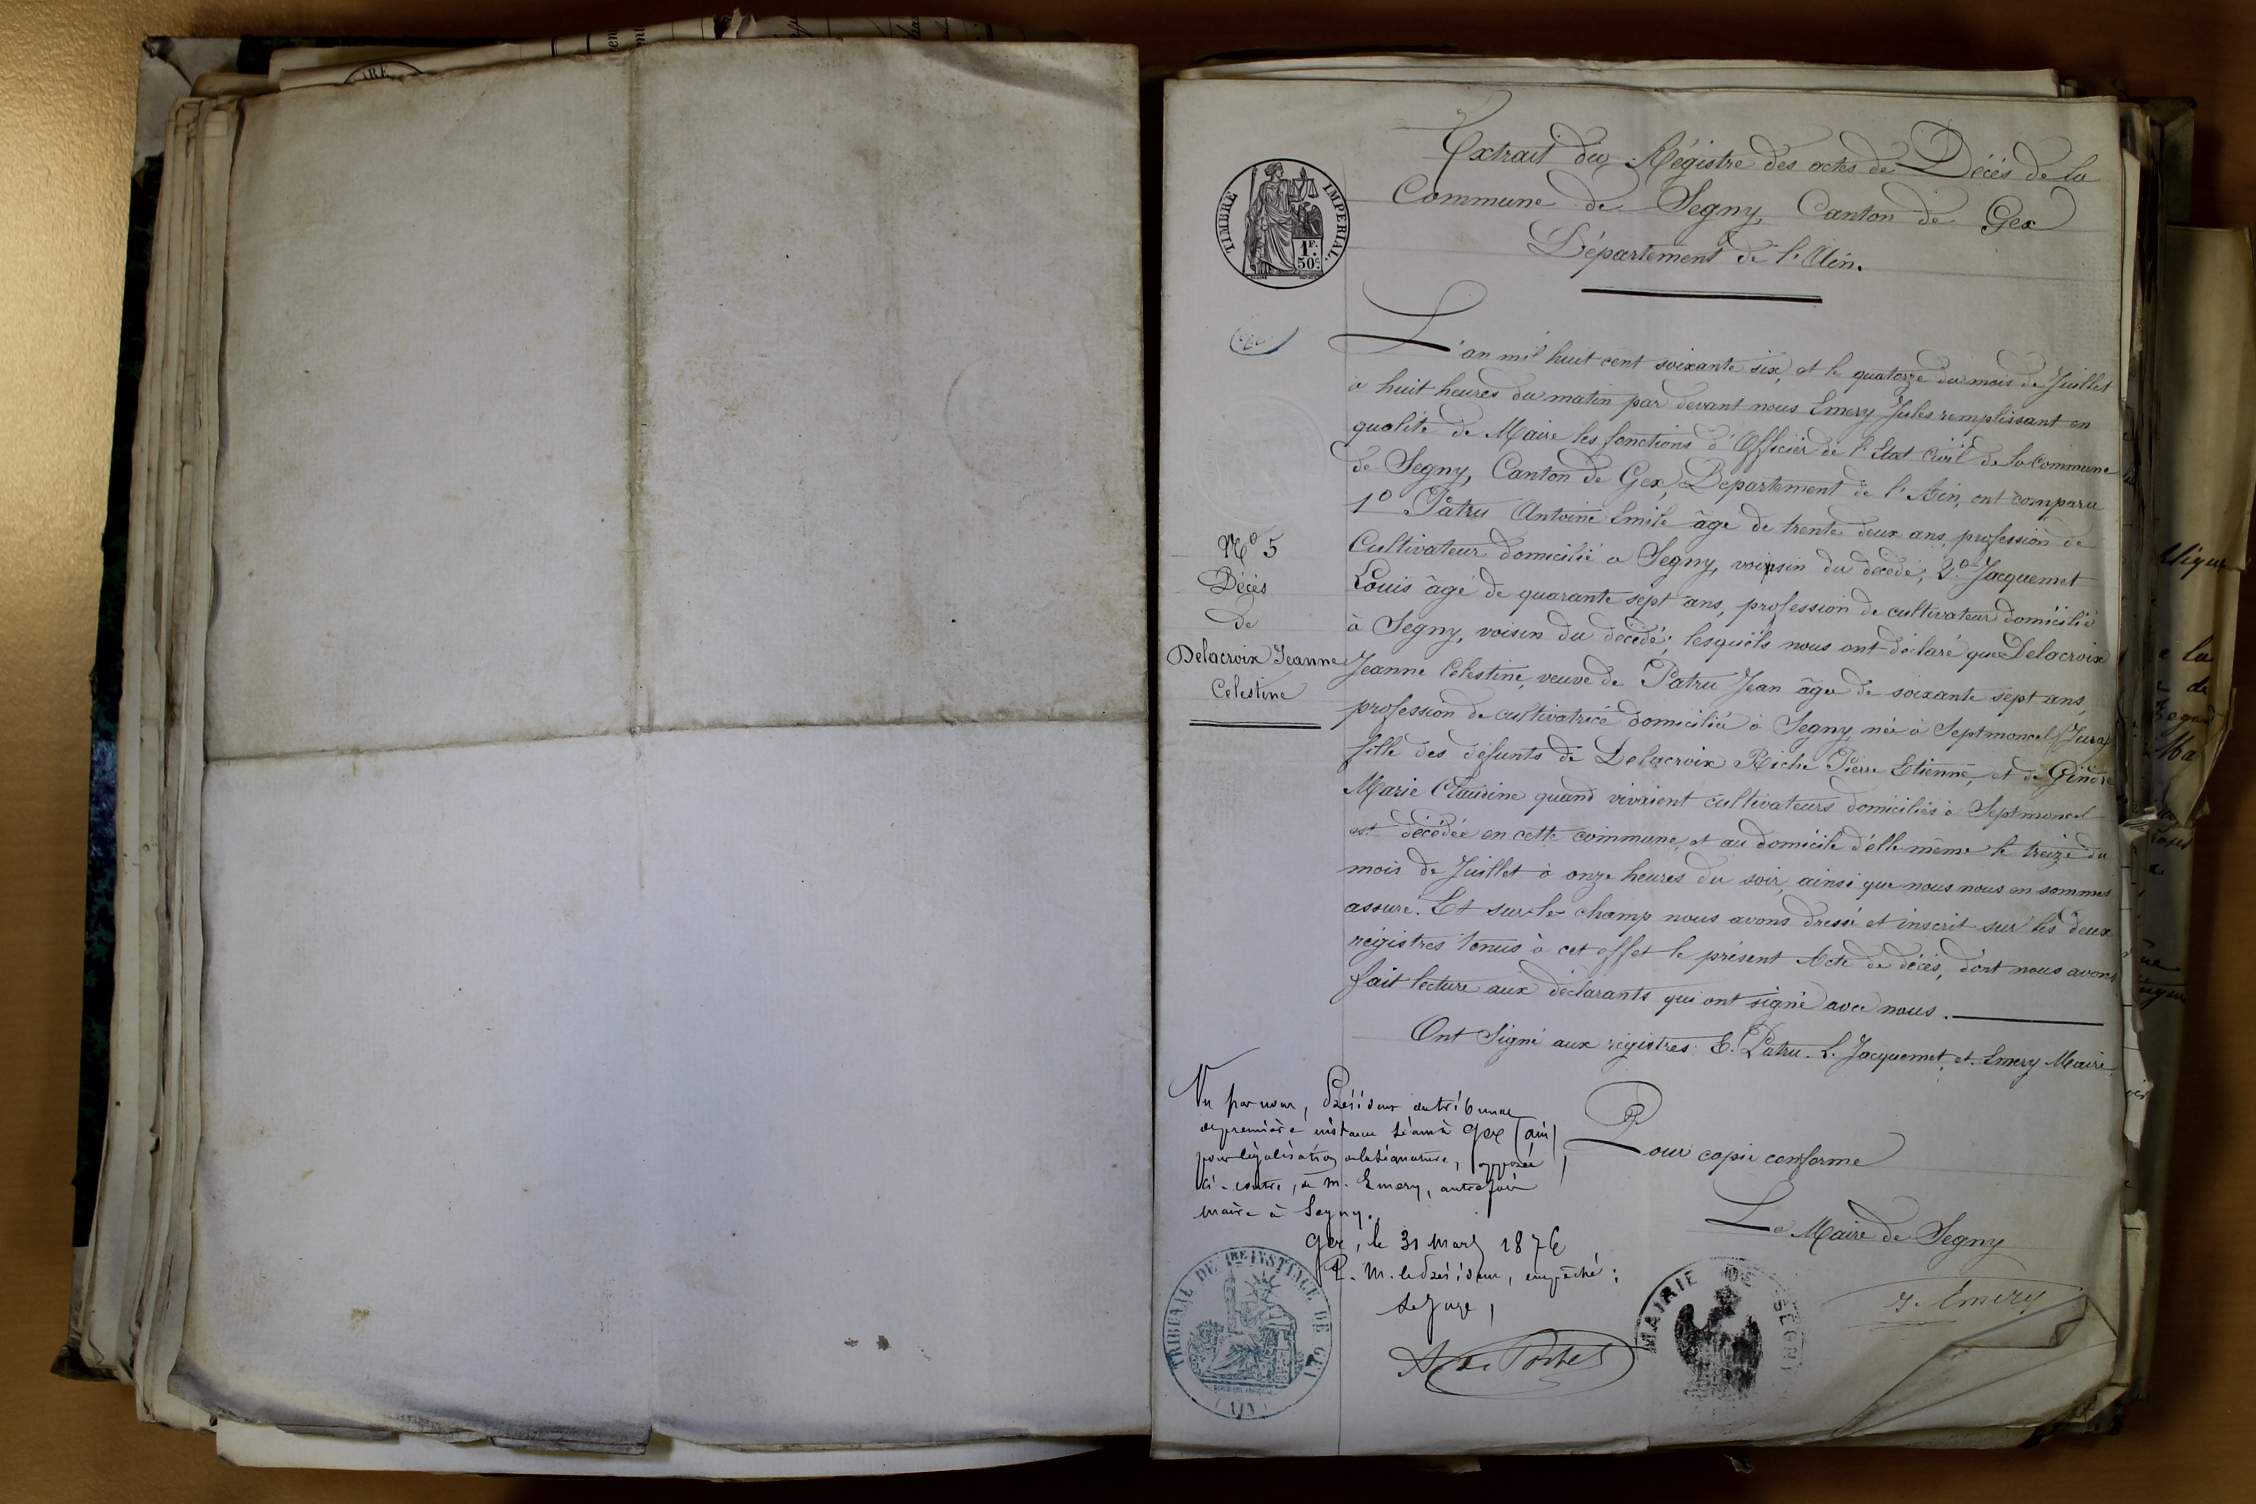 Extrait du Régistre des actes de Décès de la
Commune de Segny, Canton de Gex
Département de l'Ain.
TIMBRE IMPERIAL.
1F.
50c
L'an mil huit cent soixante six, et le quatorze du mois de Juillet
à huit heures du matin par devant nous Emery Jules remplissant en
qualité de Maire les fonctions d'Officier de l'Etat Civil de la Commune
de Segny, Canton de Gex, Département de l'Ain, ont comparu
1o Patru Antoine Emile âgé de trente deux ans, profession de
Cultivateur domicilié à Segny, voisin du décédé, 2o Jacquemet
Louis âgé de quarante sept ans, profession de cultivateur domicilié
à Segny, voisin du décédé; lesquels nous ont déclaré que Delacroix
Jeanne Célestine, veuve de Patru Jean âgée de soixante sept ans,
profession de cultivatrice domiciliée à Segny née à Septmoncel (Jura)
fille des défunts de Delacroix Riche Pierre Etienne, et de Gindre
Marie Claurine quand vivaient cultivateurs domiciliés à Septmoncel
est décédée en cette commune et au domicile d'elle même le treize du
mois de Juillet à onze heures du soir, ainsi que nous nous en sommes
assuré. Et sur-le-champ nous avons dressé et inscrit sur les deux
régistres tenus à cet effet le présent Acte de décès, dont nous avons
fait lecture aux déclarants qui ont signé avec nous.
Ont Signé aux régistres: E. Patru. L. Jacquemet, et Emery Maire.
No 5
Décès
de
Delacroix Jeanne
Celestine
Vu par nous, Président du tribunal
de première instance séant à Gex (ain)
pour légalisation de la signature, apposée
ci-contre, de M. Emery, autrefois
maire à Segny.
Gex, le 31 Mars 1876
P. M. le Président, empêché;
Le Juge,
Pour copie conforme
Le Maire de Segny
J. Emery
TRIBUNAL DE 1RE INSTANCE DE GEX
(AIN)
MAIRIE DE SEGNY